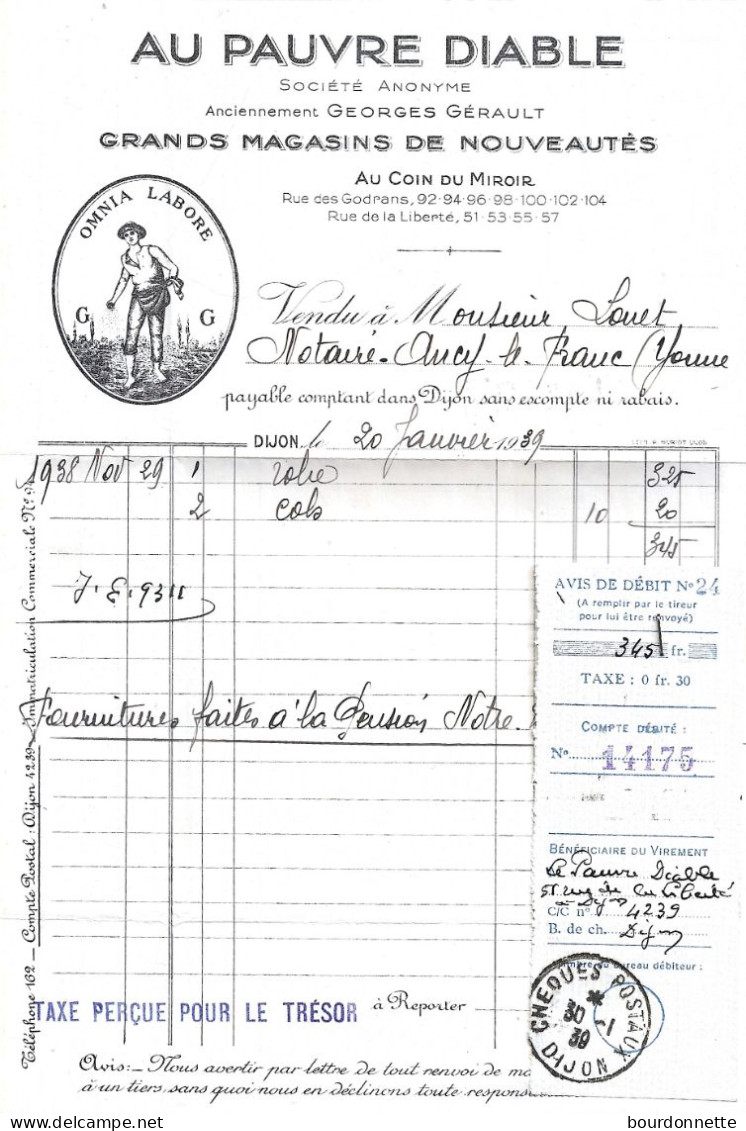 AU PAUVRE DIABLE
SOCIÉTÉ ANONYME
Anciennement GEORGES GÉRAULT
GRANDS MAGASINS DE NOUVEAUTÉS
AU COIN DU MIROIR
Rue des Godrans, 92-94-96-98-100-102-104
Rue de la Liberté, 51-53-55-57
OMNIA LABORE
G G
Vendu à Monsieur Louet
Notaire - Ancy-le-Franc (Yonne
payable comptant dans Dijon sans escompte ni rabais.
DIJON, le 20 Janvier 1939
1938 Nov 29 1 robe 325
2 cols 10 20
345
J. E. 9311
Fournitures faites à la Pension Notre-
AVIS DE DÉBIT No 24
(A remplir par le tireur
pour lui être renvoyé)
345 fr.
TAXE : 0 fr. 30
COMPTE DÉBITÉ :
No 14175
BÉNÉFICIAIRE DU VIREMENT
Le Pauvre Diable
51 rue de la Liberté
à Dijon
C/C no 4239
B. de ch. Dijon
bureau débiteur :
CHEQUES POSTAUX
30 -1
39
DIJON
TAXE PERÇUE POUR LE TRÉSOR
à Reporter
Avis:- Nous avertir par lettre de tout renvoi de
à un tiers, sans quoi nous en déclinons toute
Téléphone 162 - Compte Postal : Dijon 4239 - Immatriculation Commerciale No
bourdonnette